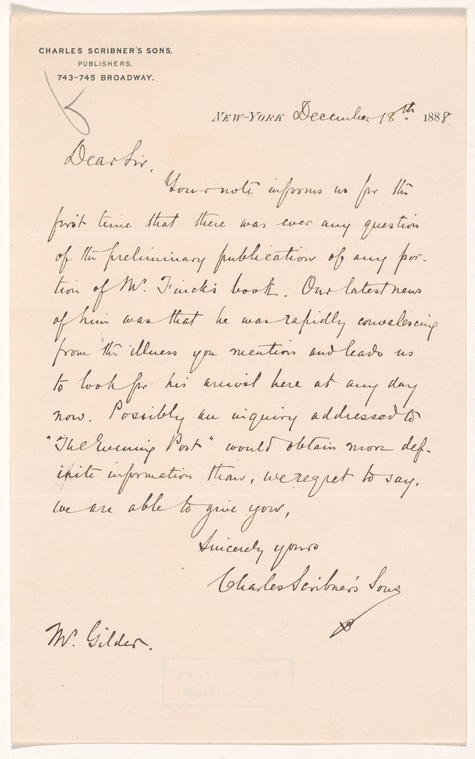 CHARLES SCRIBNER'S SONS.
PUBLISHERS,
743-745 BROADWAY.
NEW-YORK December 18th. 1888.
Dear Sir,
Your note informs us for the
first time that there was ever any question
of the preliminary publication of any por-
tion of Mr. Finck's book. Our latest news
of him was that he was rapidly convalescing
from the illness you mention and leads us
to look for his arrival here at any day
now. Possibly an inquiry addressed to
"The Evening Post" would obtain more def-
inite information than, we regret to say,
we are able to give you,
Sincerely yours
Charles Scribner's Sons
Mr. Gilder.